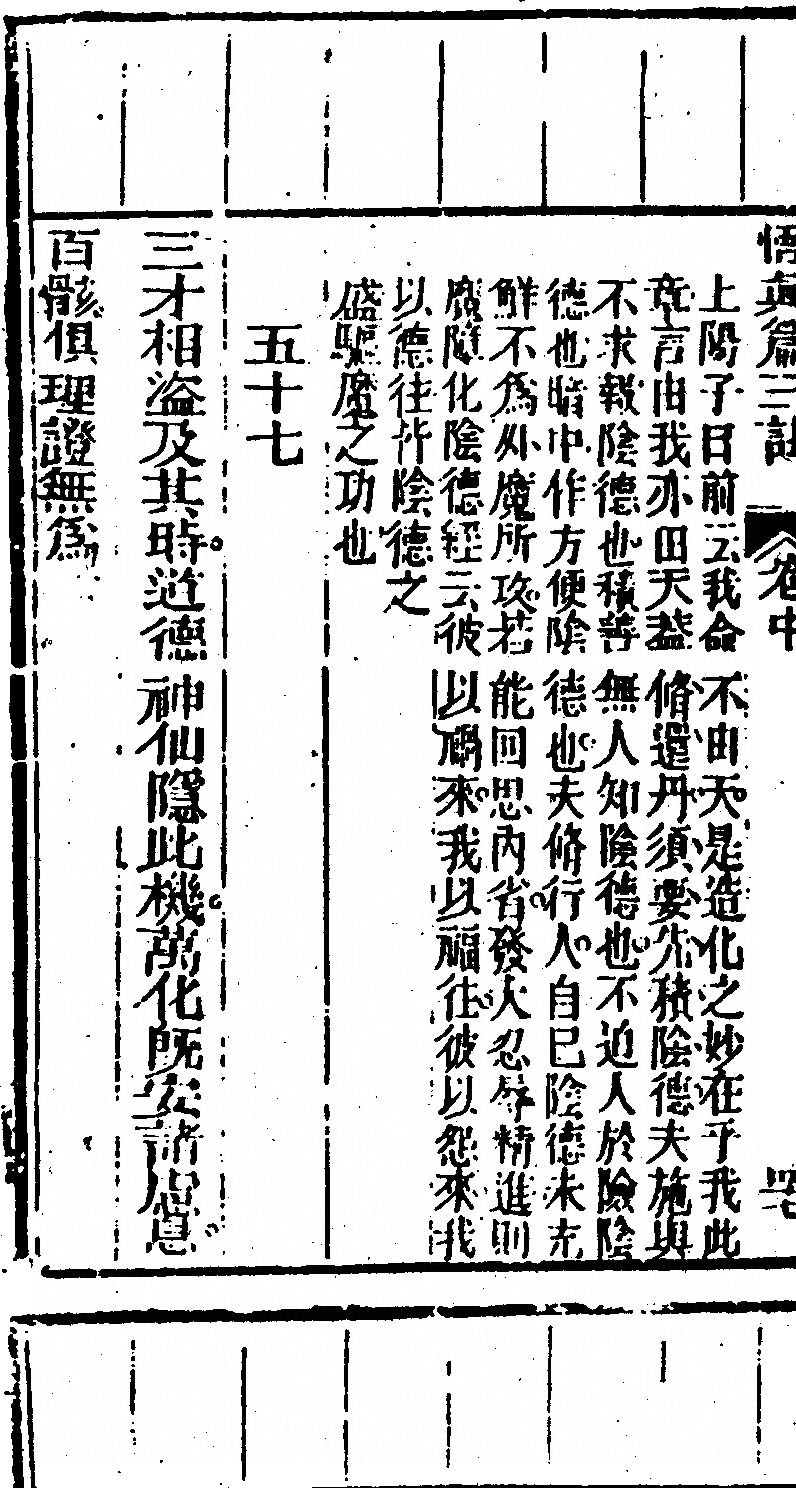 悟真篇三註 卷中
上陽子曰前云我命不由天。是造化之妙在乎我此
章言由我亦由天蓋脩還丹須要先積陰德夫施與
不求報陰德也積善無人知陰德也。不迫人於險陰
德也暗中作方便陰德也。夫脩行。人。自己陰德未充
鮮不爲外魔所攻。若能回思內省。發大忍辱精進則
魔隨化陰德經云彼以禍來。我以福往。彼以怨來我
以德往作陰德之
盛驅魔之功也
五十七
三才相盜及其時。道德神仙隱此機。萬化旣安諸慮息。
百骸俱理證無爲